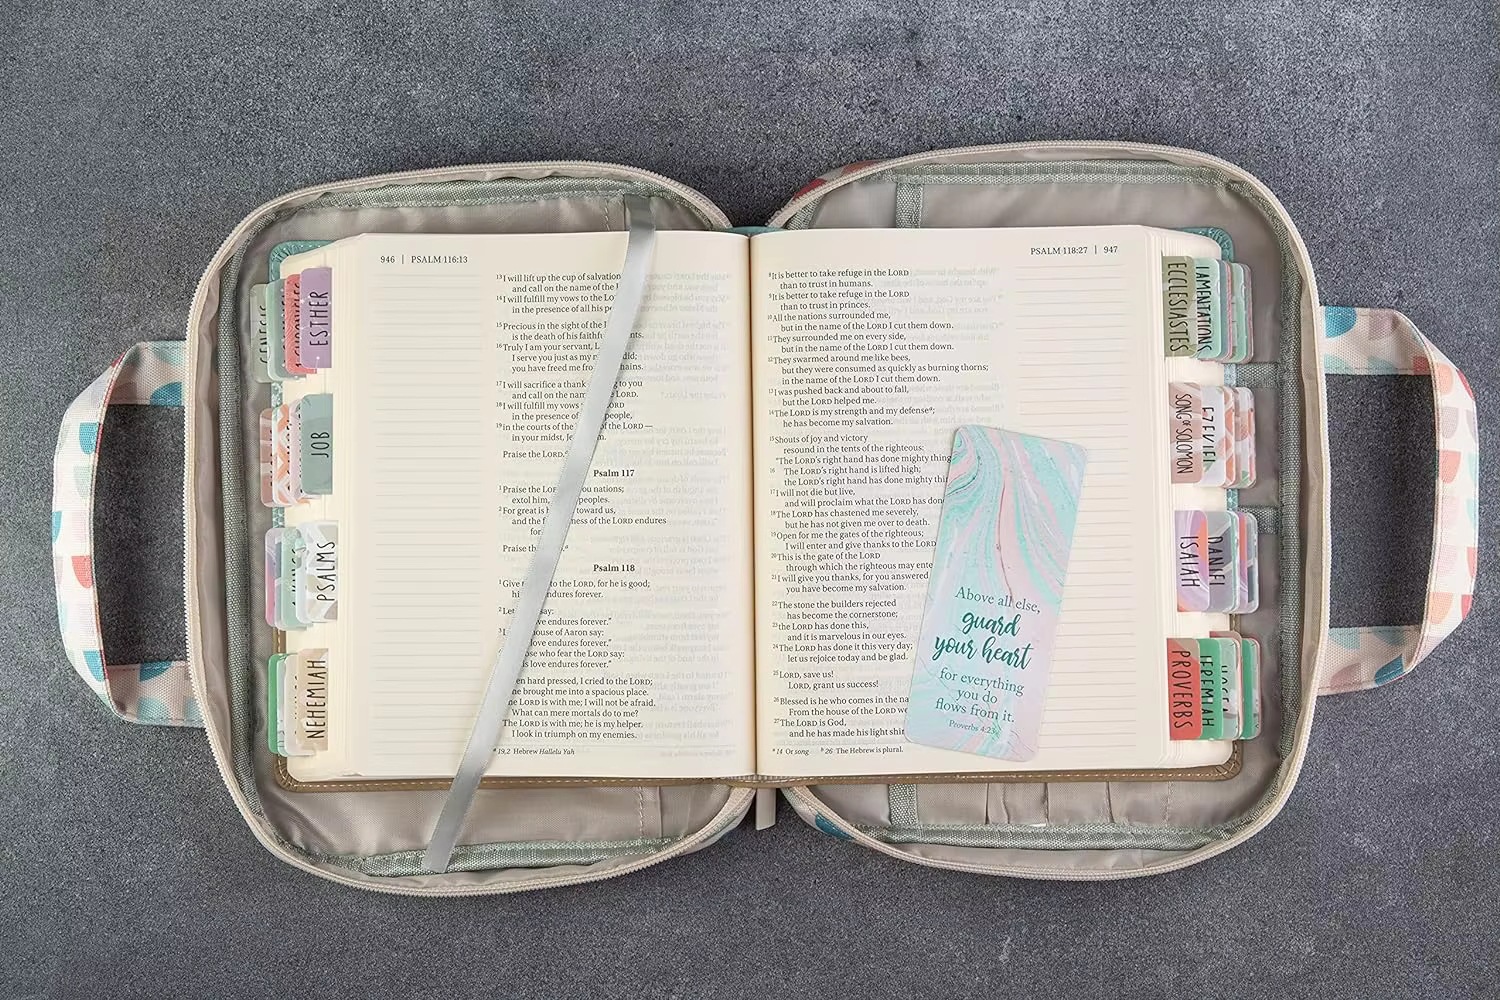 946 | PSALM 116:13
13 I will lift up the cup of salvation
and call on the name of the
14 I will fulfill my vows to the
in the presence of all his
15 Precious in the sight of the
is the death of his faithful
16 Truly I am your servant,
I serve you just as my did;
you have freed me from chains.
17 I will sacrifice a thank to you
and call on the name LORD.
18 I will fulfill my vows LORD
in the presence of people,
19 in the courts of the of the LORD—
in your midst,
Praise the LORD.
Psalm 117
1 Praise the you nations;
extol him, peoples.
2 For great is toward us,
and the of the LORD endures
Praise
Psalm 118
1 Give to the LORD, for he is good;
endures forever.
2 Let say:
love endures forever.”
3 house of Aaron say:
love endures forever.”
who fear the LORD say:
love endures forever.”
hard pressed, I cried to the LORD;
he brought me into a spacious place.
The LORD is with me; I will not be afraid.
What can mere mortals do to me?
The LORD is with me; he is my helper.
I look in triumph on my enemies.
a 19,2 Hebrew Hallelu Yah
PSALM 118:27 | 947
8 It is better to take refuge in the LORD
than to trust in humans.
9 It is better to take refuge in the LORD
than to trust in princes.
10 All the nations surrounded me,
but in the name of the LORD I cut them down.
11 They surrounded me on every side,
but in the name of the LORD I cut them down.
12 They swarmed around me like bees,
but they were consumed as quickly as burning thorns;
in the name of the LORD I cut them down.
13 I was pushed back and about to fall,
but the LORD helped me.
14 The LORD is my strength and my defense a;
he has become my salvation.
15 Shouts of joy and victory
resound in the tents of the righteous:
“The LORD’s right hand has done mighty
16 The LORD’s right hand is lifted high;
the LORD’s right hand has done mighty
17 I will not die but live,
and will proclaim what the LORD has
18 The LORD has chastened me severely,
but he has not given me over to death.
19 Open for me the gates of the righteous;
I will enter and give thanks to the LORD
20 This is the gate of the LORD
through which the righteous may
21 I will give you thanks, for you answered
you have become my salvation.
22 The stone the builders rejected
has become the cornerstone;
23 the LORD has done this,
and it is marvelous in our eyes.
24 The LORD has done it this very day;
let us rejoice today and be glad.
25 LORD, save us!
LORD, grant us success!
26 Blessed is he who comes in the
From the house of the LORD
27 The LORD is God,
and he has made his light
a 14 Or song b 26 The Hebrew is plural.
Above all else,
guard
your heart
for everything
you do
flows from it.
Proverbs 4:23
GENESIS
ESTHER
JOB
PSALMS
NEHEMIAH
ECCLESIASTES
LAMENTATIONS
SONG OF SOLOMON
EZEKIEL
ISAIAH
DANIEL
PROVERBS
JEREMIAH
HOSEA